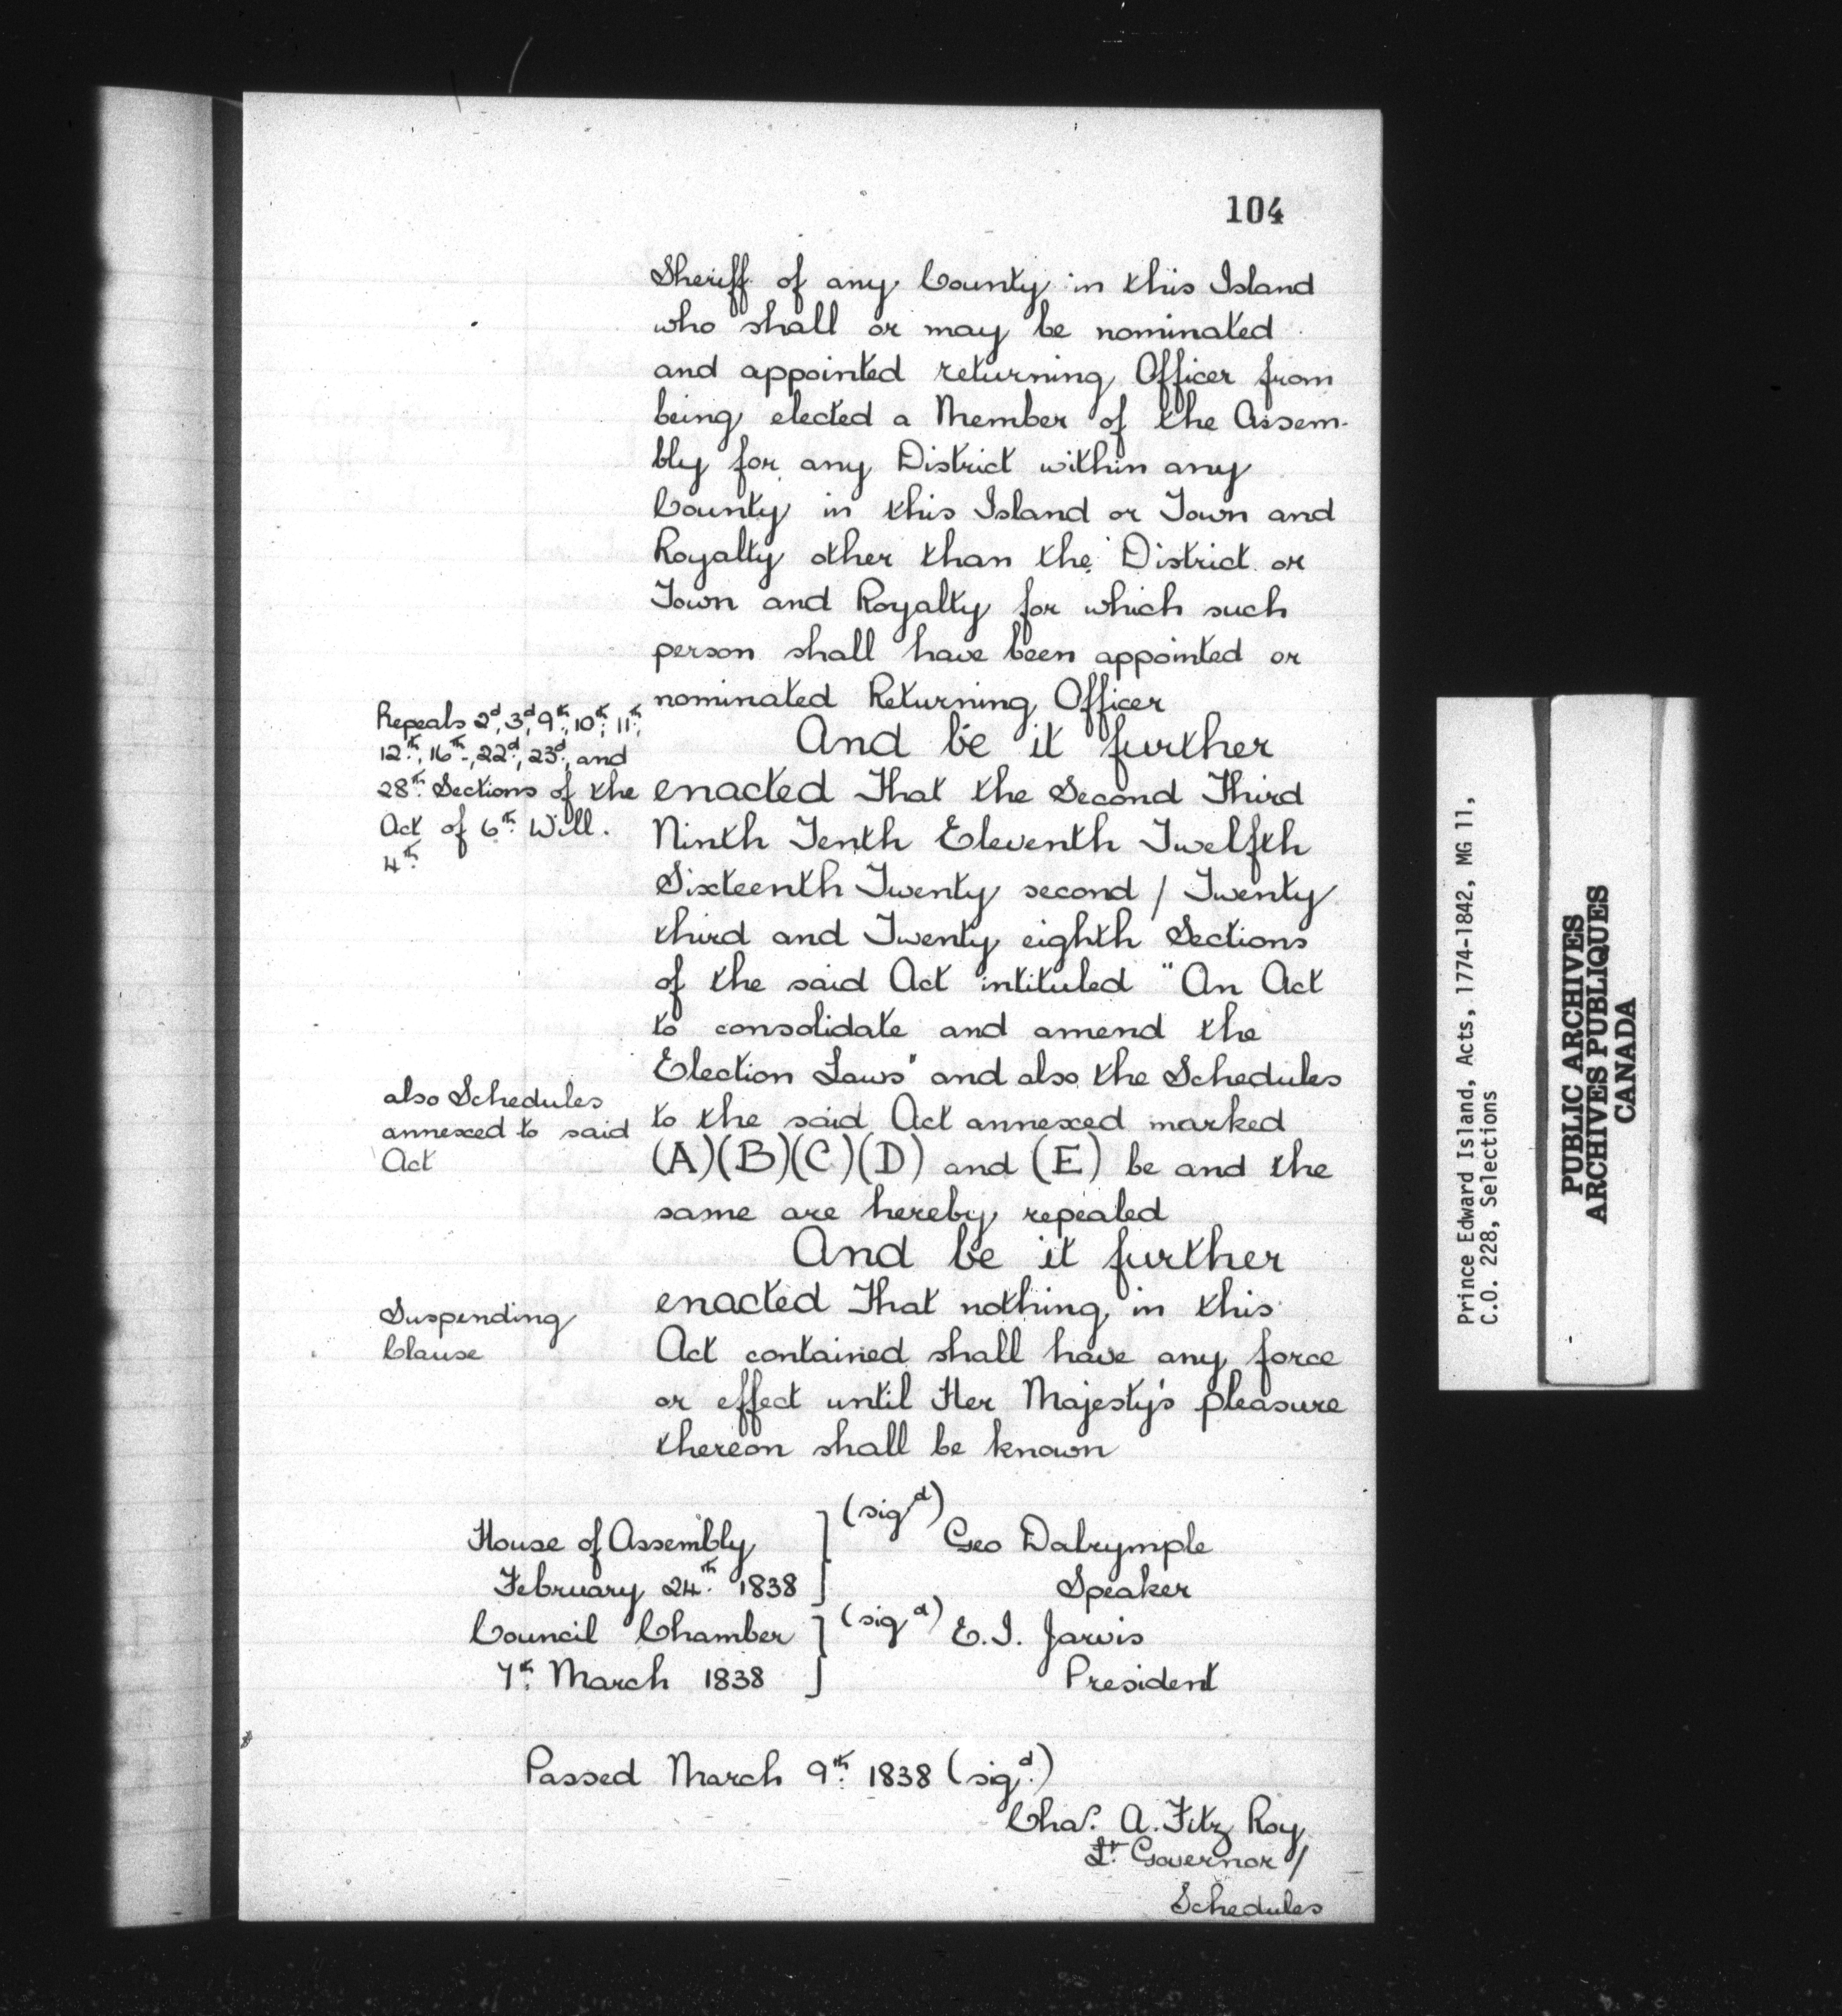 104
Sheriff of any County in this Island
who shall or may be nominated
and appointed returning Officer from
being elected a Member of the Assem-
bly for any District within any
County in this Island or Town and
Royalty other than the District or
Town and Royalty for which such
person shall have been appointed or
nominated Returning Officer
Repeals 2d, 3d, 9th, 10th, 11th,
12th, 16th, 22d, 23d, and
28th Sections of the
Act of 6th Will.
4th
And be it further
enacted That the Second Third
Ninth Tenth Eleventh Twelfth
Sixteenth Twenty second / Twenty
third and Twenty eighth Sections
of the said Act intituled "An Act
to consolidate and amend the
Election Laws" and also the Schedules
to the said Act annexed marked
(A)(B)(C)(D) and (E) be and the
same are hereby repealed
also Schedules
annexed to said
Act
And be it further
enacted That nothing in this
Act contained shall have any force
or effect until Her Majesty's pleasure
thereon shall be known
Suspending
Clause
House of Assembly
February 24th 1838
(sigd)
Geo Dalrymple
Speaker
Council Chamber
7th March 1838
(sigd) E.J. Jarvis
President
Passed March 9th 1838 (sigd.)
Chas. A. Fitz Roy
Lt. Governor /
Schedules
Prince Edward Island, Acts, 1774-1842, MG 11,
C.O. 228, Selections
PUBLIC ARCHIVES
ARCHIVES PUBLIQUES
CANADA